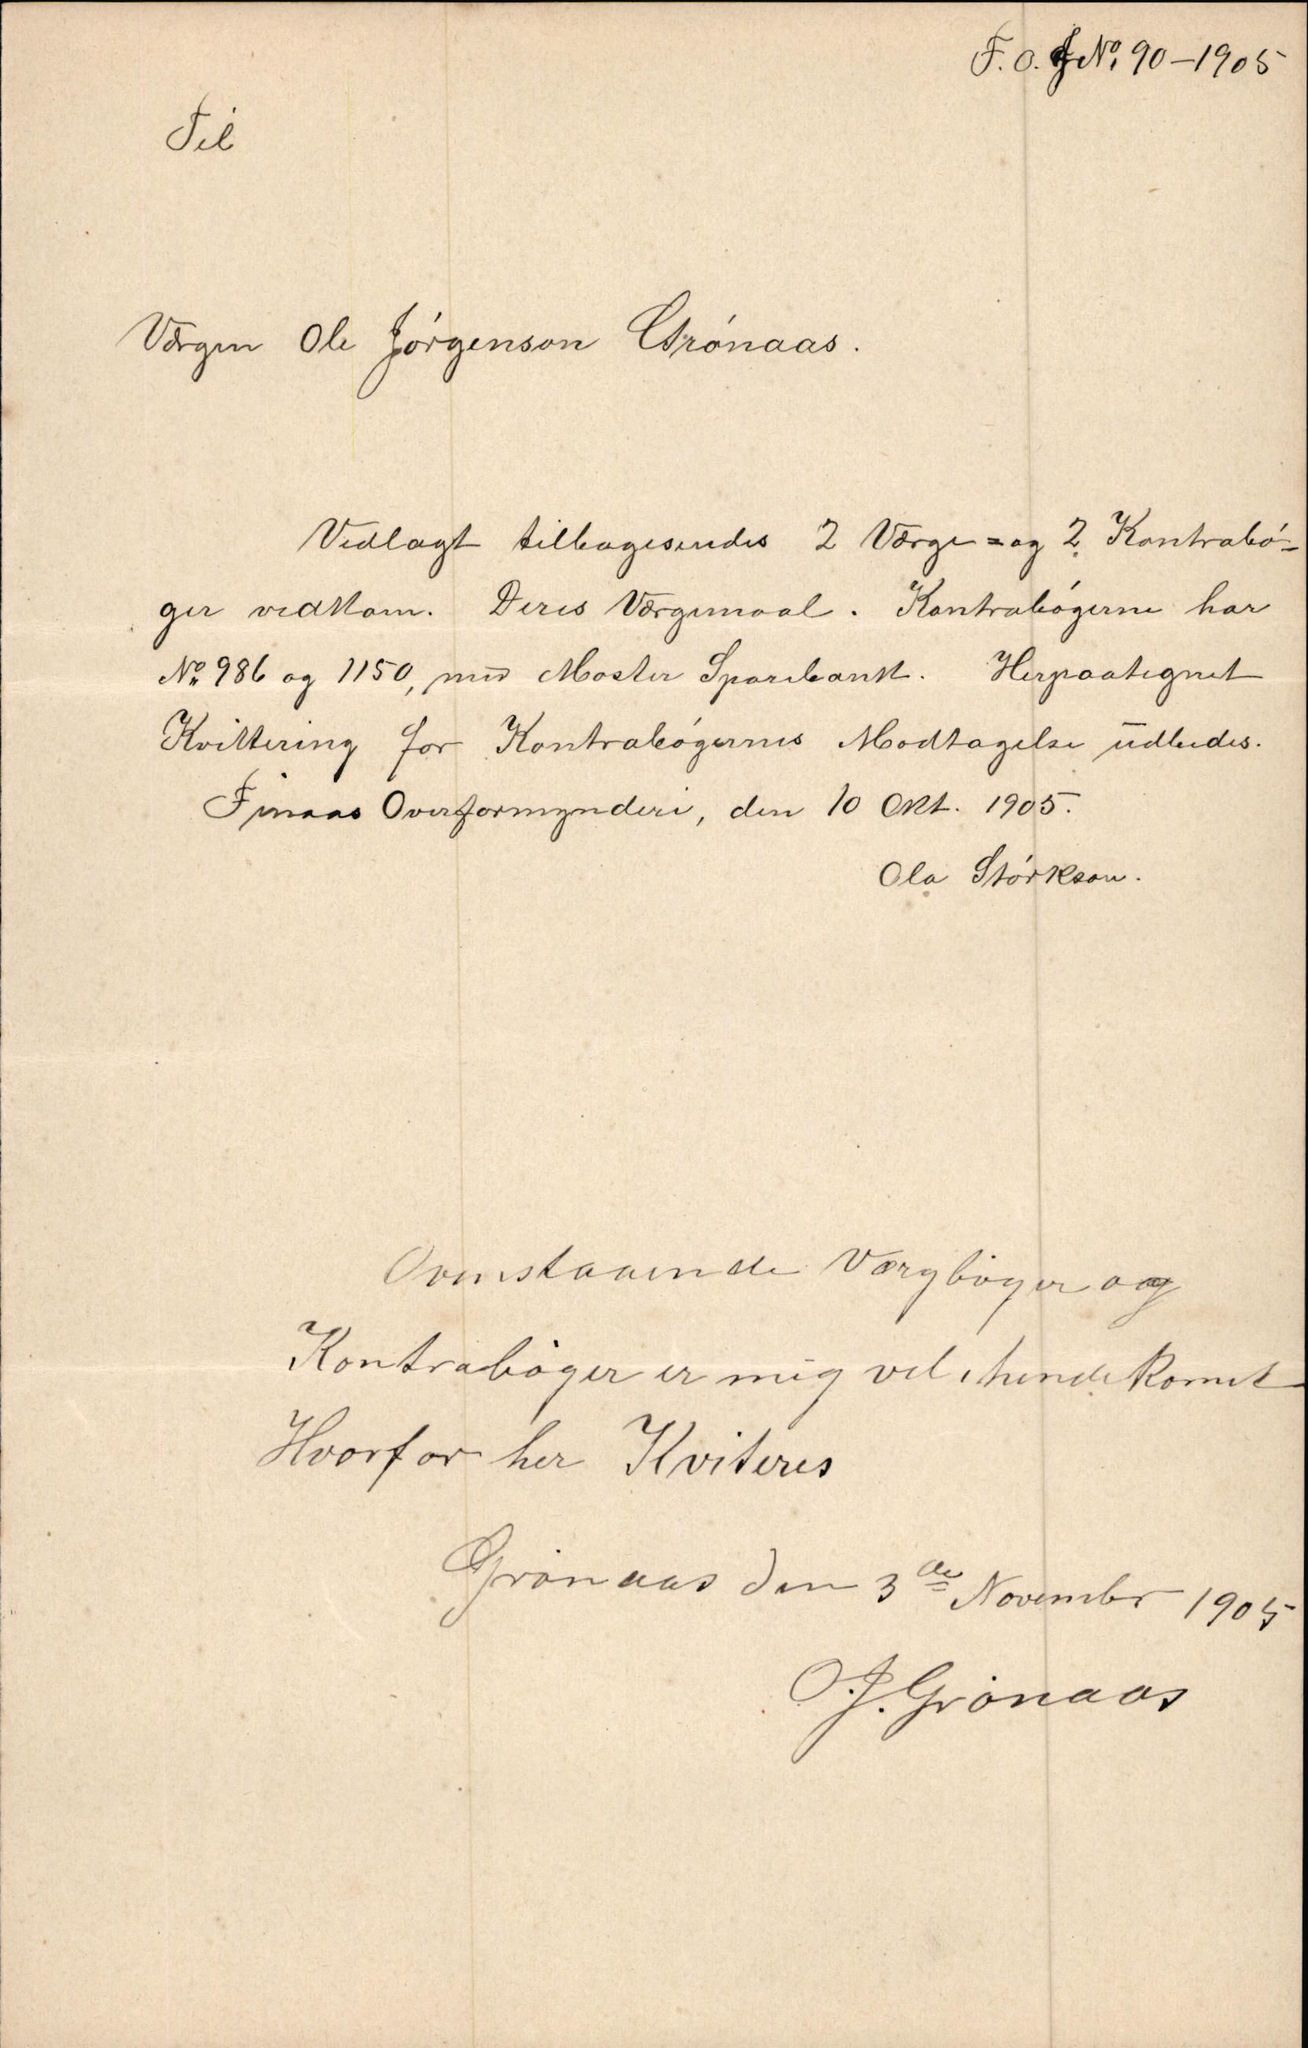 F.O.J No. 90-1905
Til
Værgen Ole Jørgenson Grønaas.
Vedlagt tilbagesendes 2 Værge= og 2 Kontrabø-
ger vedkom. Deres Værgemaal. Kontrabøgerne har
No. 986 og 1150, med Moster Sparebank. Herpaategnet
Kvittering for Kontrabøgernes Modtagelse udbedes.
Finaas Overformynderi, den 10 Okt. 1905.
Ola Størkson.
Ovenstaaende Værgbøger og
Kontrabøger er mig vel ihendekomet
Hvorfor her Kviteres
Grønaas den 3de November 1905
O.J. Grønaas